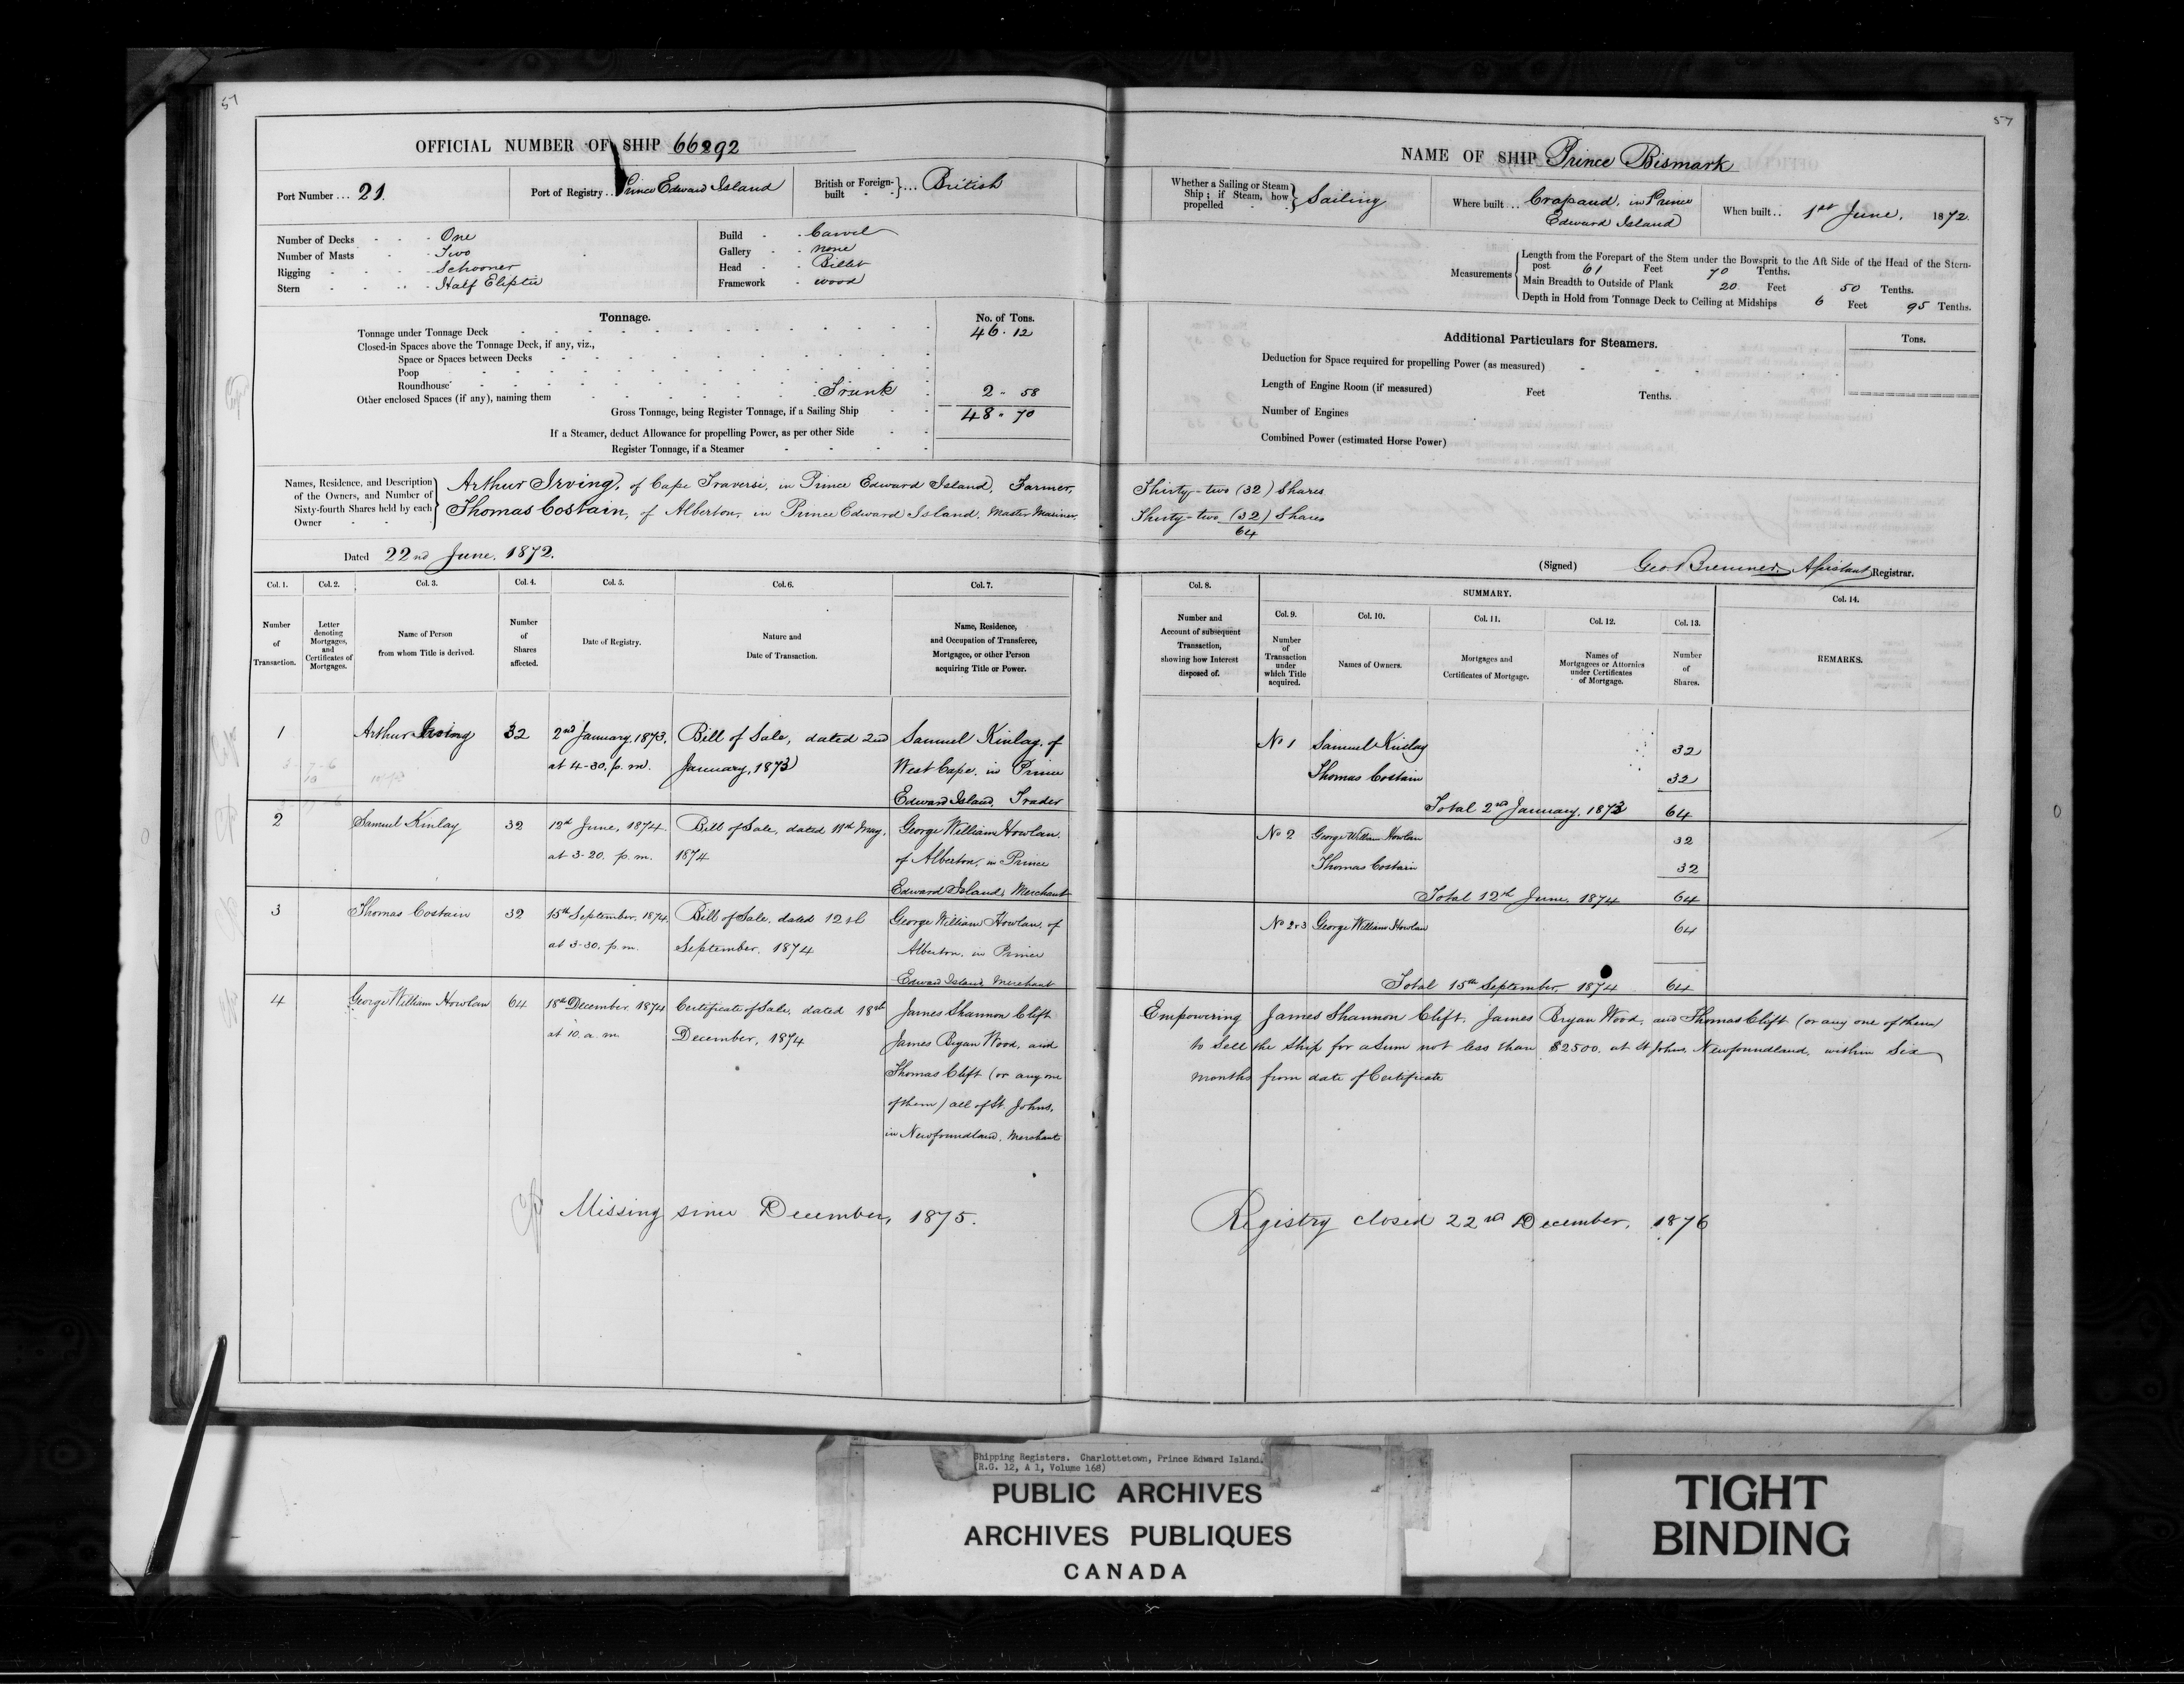 57
OFFICIAL NUMBER OF SHIP 66292
Port Number ... 21.
Port of Registry .. Prince Edward Island
British or Foreign-built } ... British
Number of Decks - - - One
Number of Masts - - Two
Rigging - - - - Schooner
Stern - - - - Half Eliptic
Build - - Carvel
Gallery - - none
Head - - Billet
Framework - wood
Tonnage.
No. of Tons.
Tonnage under Tonnage Deck 46 . 12
Closed-in Spaces above the Tonnage Deck, if any, viz.,
Space or Spaces between Decks
Poop
Roundhouse
Other enclosed Spaces (if any), naming them Trunk 2 - 58
Gross Tonnage, being Register Tonnage, if a Sailing Ship 48 - 70
If a Steamer, deduct Allowance for propelling Power, as per other Side
Register Tonnage, if a Steamer
Names, Residence, and Description of the Owners, and Number of Sixty-fourth Shares held by each Owner
Arthur Irving, of Cape Traverse, in Prince Edward Island, Farmer,
Thomas Costain, of Alberton, in Prince Edward Island, Master Mariner,
Dated 22nd June, 1872.
Col. 1. Col. 2. Col. 3. Col. 4. Col. 5. Col. 6. Col. 7.
Number of Transaction.
Letter denoting Mortgages, and Certificates of Mortgages.
Name of Person from whom Title is derived.
Number of Shares affected.
Date of Registry.
Nature and Date of Transaction.
Name, Residence, and Occupation of Transferee, Mortgagee, or other Person acquiring Title or Power.
1 Arthur Irving 32 2nd January, 1873, Bill of Sale, dated 2nd Samuel Kinlay, of
at 4-30, p.m. January, 1873 West Cape, in Prince
Edward Island, Trader
2 Samuel Kinlay 32 12th June, 1874. Bill of Sale, dated 11th May, George William Howlan,
at 3-20. p.m. 1874 of Alberton, in Prince
Edward Island, Merchant
3 Thomas Costain 32 15th September, 1874, Bill of Sale, dated 12th George William Howlan, of
at 3-30, p.m. September, 1874 Alberton, in Prince
Edward Island, Merchant
4 George William Howlan 64 18th December, 1874 Certificate of Sale, dated 18th James Shannon Clift
at 10. a.m. December, 1874 James Bryan Wood, and
Thomas Clift (or any one
of them) all of St. Johns,
in Newfoundland, Merchants
Missing since December, 1875.
57
NAME OF SHIP Prince Bismark
Whether a Sailing or Steam Ship; if Steam, how propelled } Sailing
Where built ... Crapaud, in Prince
Edward Island
When built .. 1st June, 1872.
Measurements
Length from the Forepart of the Stem under the Bowsprit to the Aft Side of the Head of the Stern-
post 61 Feet 70 Tenths.
Main Breadth to Outside of Plank 20 Feet 50 Tenths.
Depth in Hold from Tonnage Deck to Ceiling at Midships 6 Feet 95 Tenths.
Additional Particulars for Steamers.
Tons.
Deduction for Space required for propelling Power (as measured)
Length of Engine Room (if measured) Feet Tenths.
Number of Engines
Combined Power (estimated Horse Power)
Thirty-two (32) Shares
Thirty-two (32) Shares
64
(Signed) Geo Bremner, Assistant Registrar.
Col. 8. SUMMARY. Col. 14.
Col. 9. Col. 10. Col. 11. Col. 12. Col. 13.
Number and Account of subsequent Transaction, showing how Interest disposed of.
Number of Transaction under which Title acquired.
Names of Owners.
Mortgages and Certificates of Mortgage.
Names of Mortgagees or Attornies under Certificates of Mortgage.
Number of Shares.
REMARKS.
No 1 Samuel Kinlay 32
Thomas Costain 32
Total 2nd January, 1873 64
No 2 George William Howlan 32
Thomas Costain 32
Total 12th June, 1874 64
No 2&3 George William Howlan 64
Total 15th September, 1874 64
Empowering James Shannon Clift, James Bryan Wood, and Thomas Clift (or any one of them)
to Sell the Ship for a Sum not less than $2500. at St Johns, Newfoundland, within Six
months from date of Certificate
Registry closed 22nd December, 1876
Shipping Registers. Charlottetown, Prince Edward Island.
(R.G. 12, A 1, Volume 168)
PUBLIC ARCHIVES
ARCHIVES PUBLIQUES
CANADA
TIGHT
BINDING